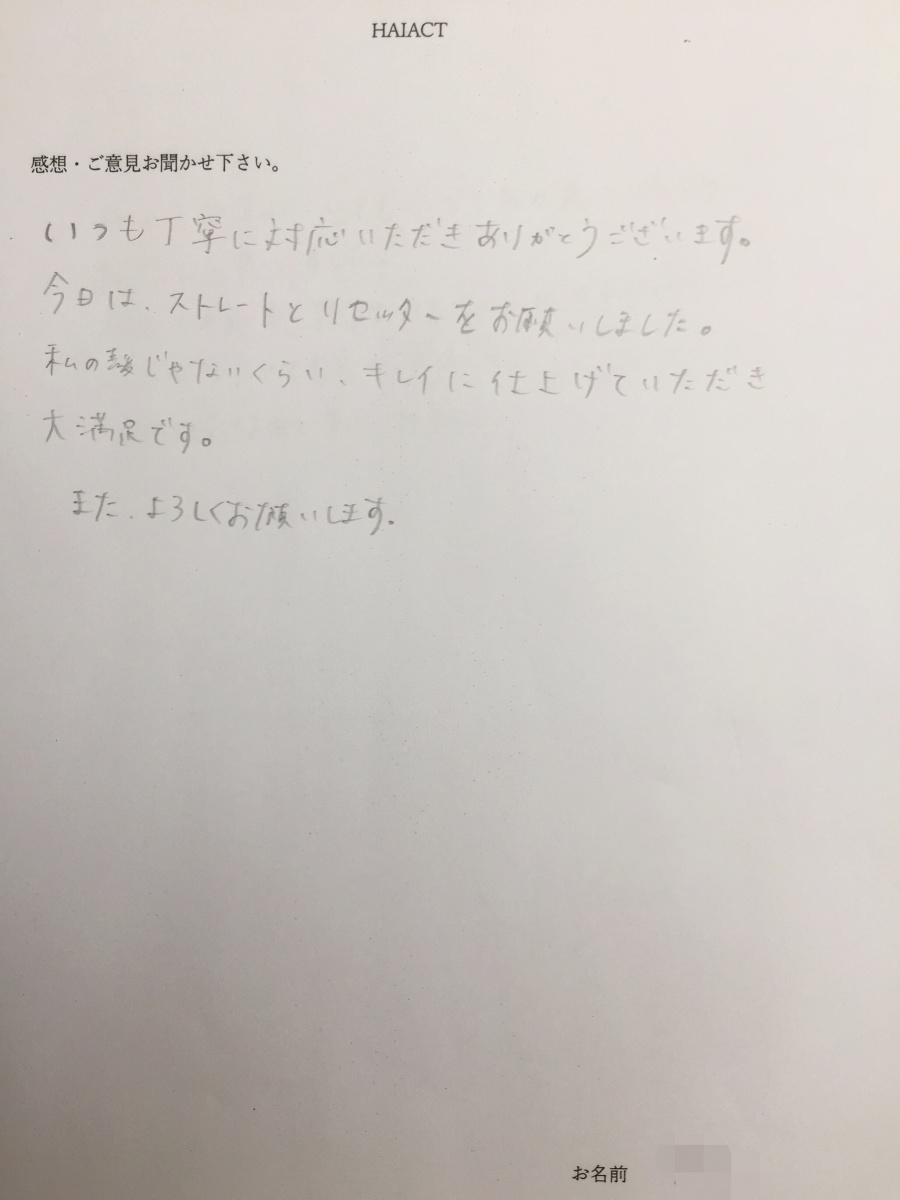 HAIACT
感想・ご意見お聞かせ下さい。
いつも丁寧に対応いただきありがとうございます。
今日は、ストレートとリセッターをお願いしました。
私の髪じゃないくらい、キレイに仕上げていただき
大満足です。
また、よろしくお願いします。
お名前